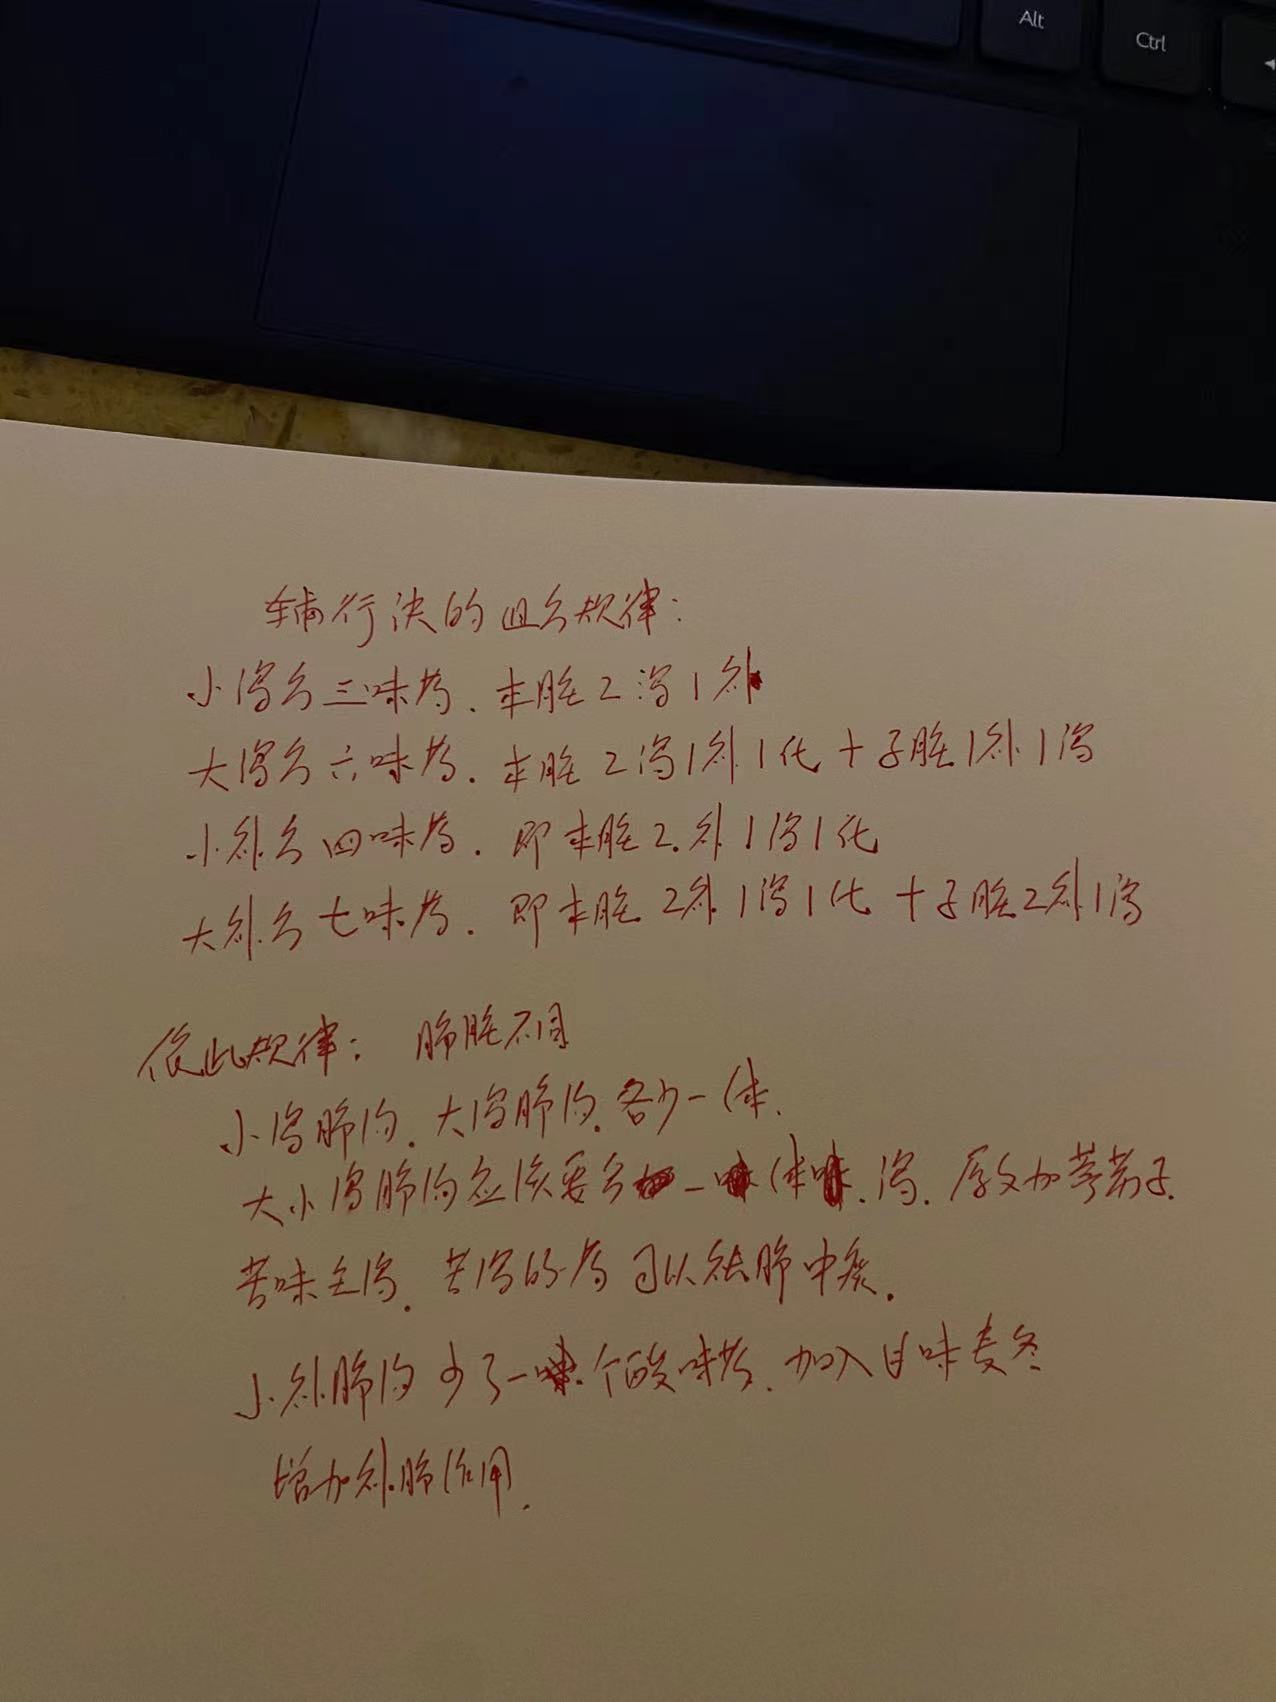 Alt
Ctrl
辅行决的组方规律:
小泻方三味药.本脏2泻1补
大泻方六味药.本脏2泻1补1化+子脏1补1泻
小补方四味药.即本脏2补1泻1化
大补方七味药.即本脏2补1泻1化+子脏2补1泻
依此规律:肺脏不同
小泻肺汤.大泻肺汤.各少一体.
大小泻肺汤应该要多一体.泻.原文加葶苈子.
苦味主泻.苦泻的药可以祛肺中痰.
小补肺汤少了一个酸味药.加入甘味麦冬
增加补肺作用.